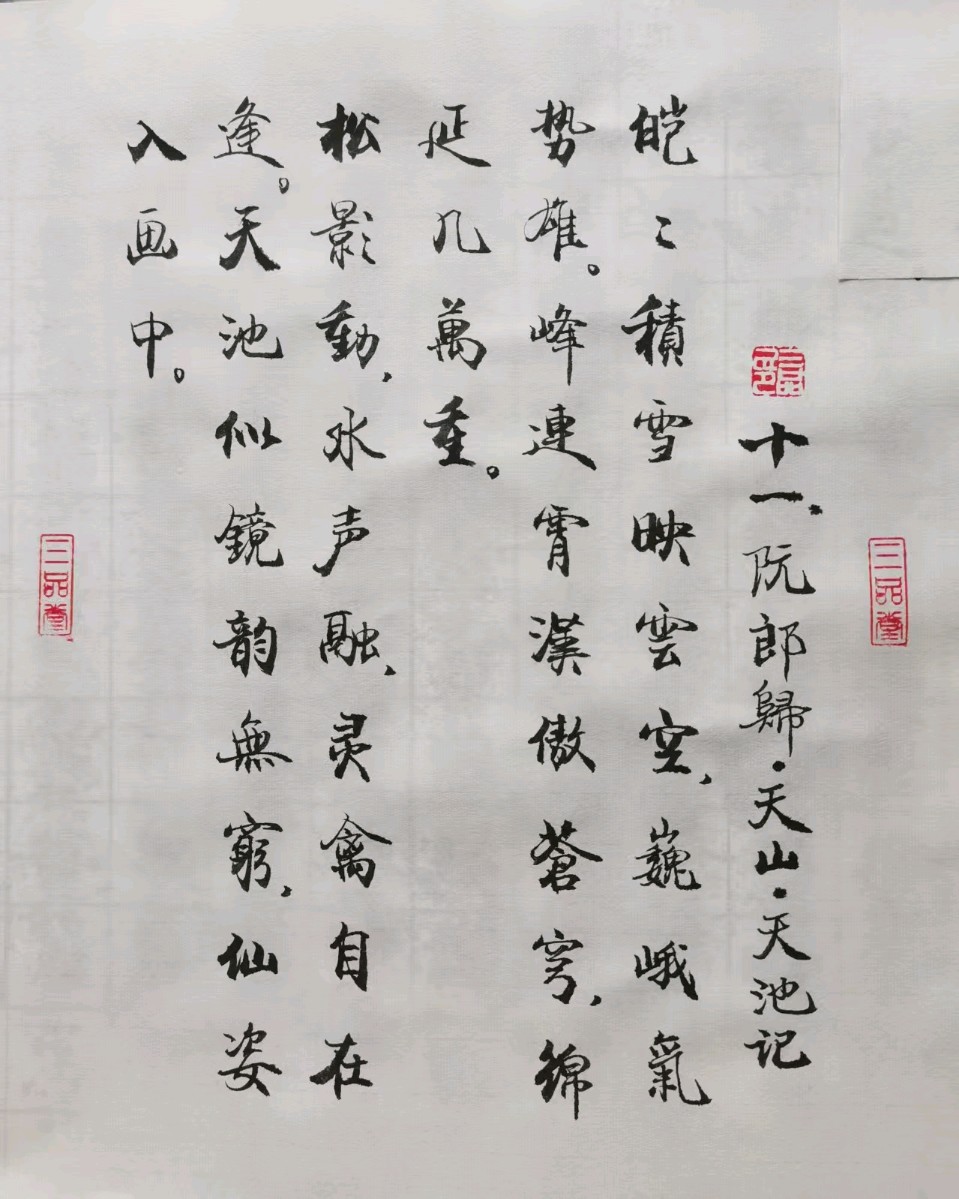 十一、阮郎歸·天山·天池记
皑〻積雪映雲空,巍峨氣
势雄。峰連霄漢傲蒼穹,綿
延几萬重。
松影動,水声融,灵禽自在
逢。天池似鏡韵無窮,仙姿
入画中。
三品堂
三品堂